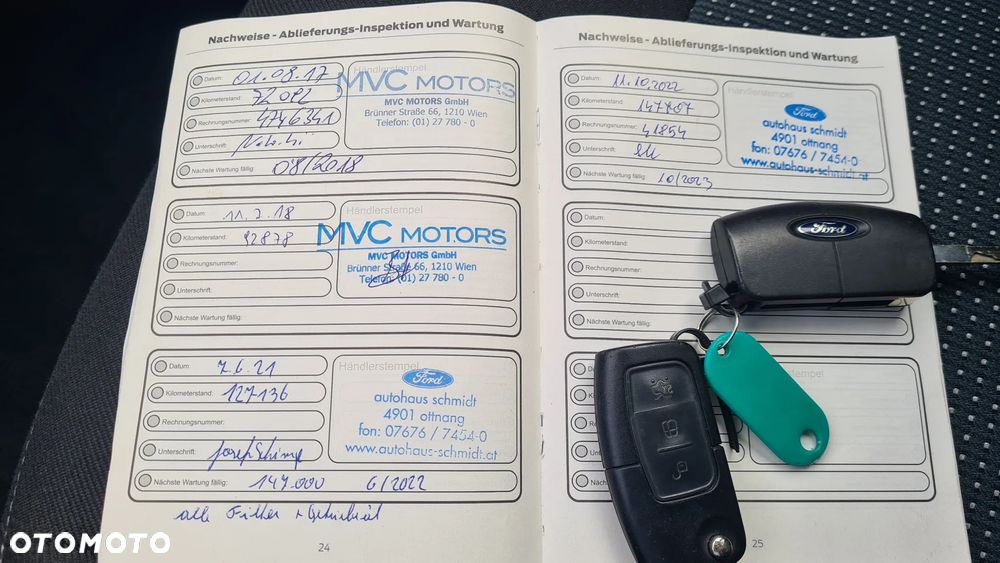 Nachweise - Ablieferungs-Inspektion und Wartung
Datum: 01.08.17
Kilometerstand: 72082
Rechnungsnummer: 4746341
Unterschrift:
Nächste Wartung fällig: 08/2018
Händlerstempel
MVC MOTORS
MVC MOTORS GmbH
Brünner Straße 66, 1210 Wien
Telefon: (01) 27 780 - 0
Datum: 11.7.18
Kilometerstand: 92878
Rechnungsnummer:
Unterschrift:
Nächste Wartung fällig:
Händlerstempel
MVC MOTORS
MVC MOTORS GmbH
Brünner Straße 66, 1210 Wien
Telefon: (01) 27 780 - 0
Datum: 7.6.21
Kilometerstand: 127136
Rechnungsnummer:
Unterschrift:
Nächste Wartung fällig: 147.000 6/2022
Händlerstempel
Ford
autohaus schmidt
4901 ottnang
fon: 07676 / 7454-0
www.autohaus-schmidt.at
alle Filter +
24
Nachweise - Ablieferungs-Inspektion und Wartung
Datum: 11.10.2022
Kilometerstand: 147707
Rechnungsnummer: 41854
Unterschrift:
Nächste Wartung fällig: 10/2023
Händlerstempel
Ford
autohaus schmidt
4901 ottnang
fon: 07676 / 7454-0
www.autohaus-schmidt.at
Datum:
Kilometerstand:
Rechnungsnummer:
Unterschrift:
Nächste Wartung fällig:
Ford
Datum:
25
OTOMOTO